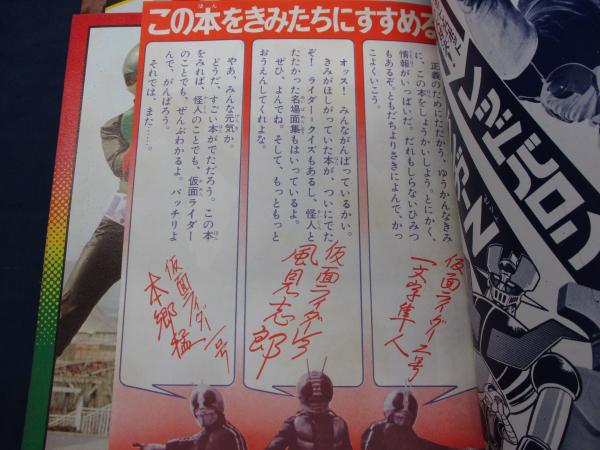 この本をきみたちにすすめる
正義のためにたたかう、ゆうかんなきみ
に、この本をしょうかいしよう。とにかく、
情報がいっぱいだ。だれもしらないひみつ
もあるぞ。ともだちよりさきによんで、かっ
こよくいこう。
仮面ライダー2号
一文字隼人
オッス！　みんながんばっているかい。
きみがほしがっていた本が、ついにでた
ぞ！　ライダークイズもあるし、怪人と
たたかった名場面集もはいっているよ。
ぜひ、よんでね。そして、もっともっと
おうえんしてくれよな。
仮面ライダーV3
風見志郎
やあ、みんな元気か。
どうだ、すごい本がでただろう。この本
をみれば、怪人のことでも、仮面ライダー
のことでも、ぜんぶわかるよ。バッチリよ
んで、がんばろう。
それでは、また……。
仮面ライダー1号
本郷猛
レッドバロン